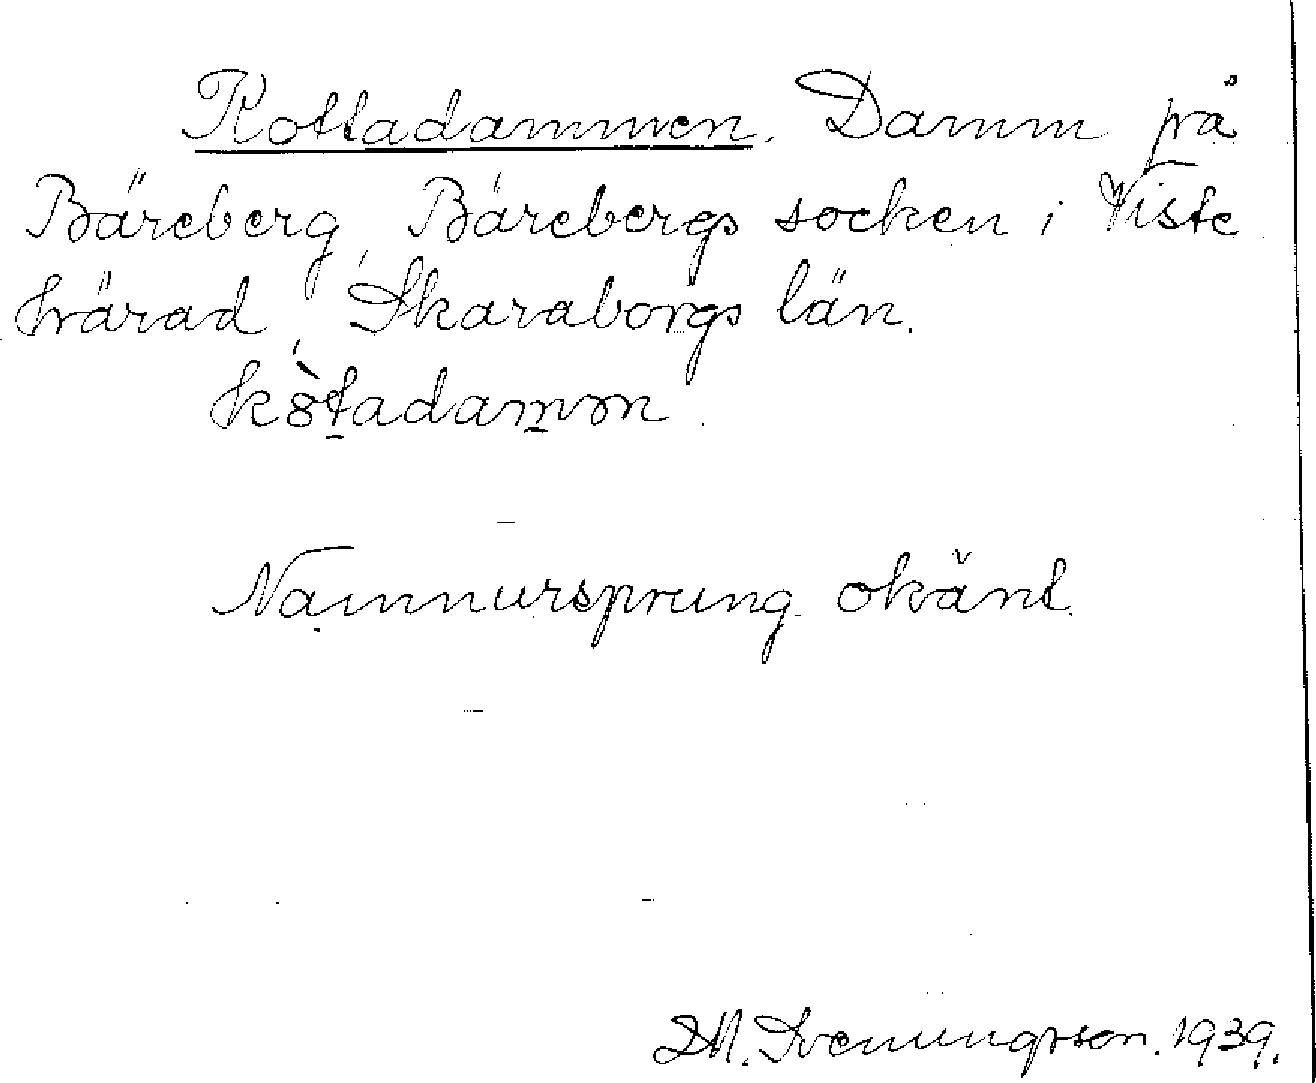 Kottadammen. Damm på
Bäreberg, Bärebergs socken i Viste
härad, Skaraborgs län.
Namnursprung okänt.
M. Svenungsson. 1939.